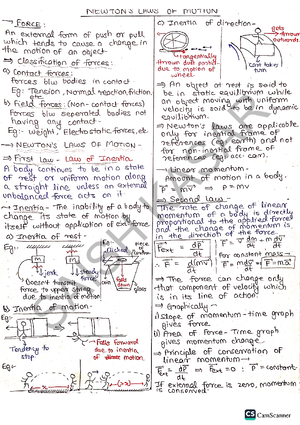 NEWTON'S LAWS OF MOTION
→ FORCE:
An external form of push or pull
which tends to cause a change in
the motion of an object
⇒ Classification of forces:
a) Contact forces:
Forces blw bodies in contact
Eg: Tension, Normal reaction, friction, etc.
b) Field forces: (Non-contact forces)
Forces blw seperated bodies not
having any contact-
Eg- Weight, Electrostatic forces, etc.
→ NEWTON'S LAWS OF MOTION-
⇒ First Law - Law of Inertia
A body continues to be in a state
of rest or uniform motion along
a straight line unless an external
unbalanced force acts on it
⇒ Inertia - The inability of a body to
change its state of motion by
itself without application of external force
a) Inertia of rest
Eg-
Doesn't transfer
force to upper string
due to inertia of motion
Falls down
b) Inertia of motion-
Eg:-
Tendency to
stop
Falls forward
due to inertia
of motion
c) Inertia of direction-
Eg-
tangentially
thrown out
due to motion of
wheel
Gets
thrown
outwards
Car takes
turn
⇒ An object at rest is said to
be in static equilibrium while
an object moving with uniform
velocity is said to be in dynamic
equilibrium.
⇒ Newton's Laws are applicable
only for inertial frame of
reference (Eg- earth) and not
for non-inertial frame of
reference (Eg- acc. car).
→ Linear momentum-
Amount of motion in a body.
p = mv
⇒ Second Law:
The rate of change of linear
momentum of a body is directly
proportional to the applied force
and the change of momentum is in
the direction of the force.
For constant mass-
⇒ The force can change only
that component of velocity which
is in its line of action
⇒ Graphically-
a) Slope of momentum-time graph
gives force.
b) Area of Force-Time graph
gives momentum change.
⇒ Principle of conservation of
linear momentum-
If external force is zero, momentum
is conserved
CS CamScanner